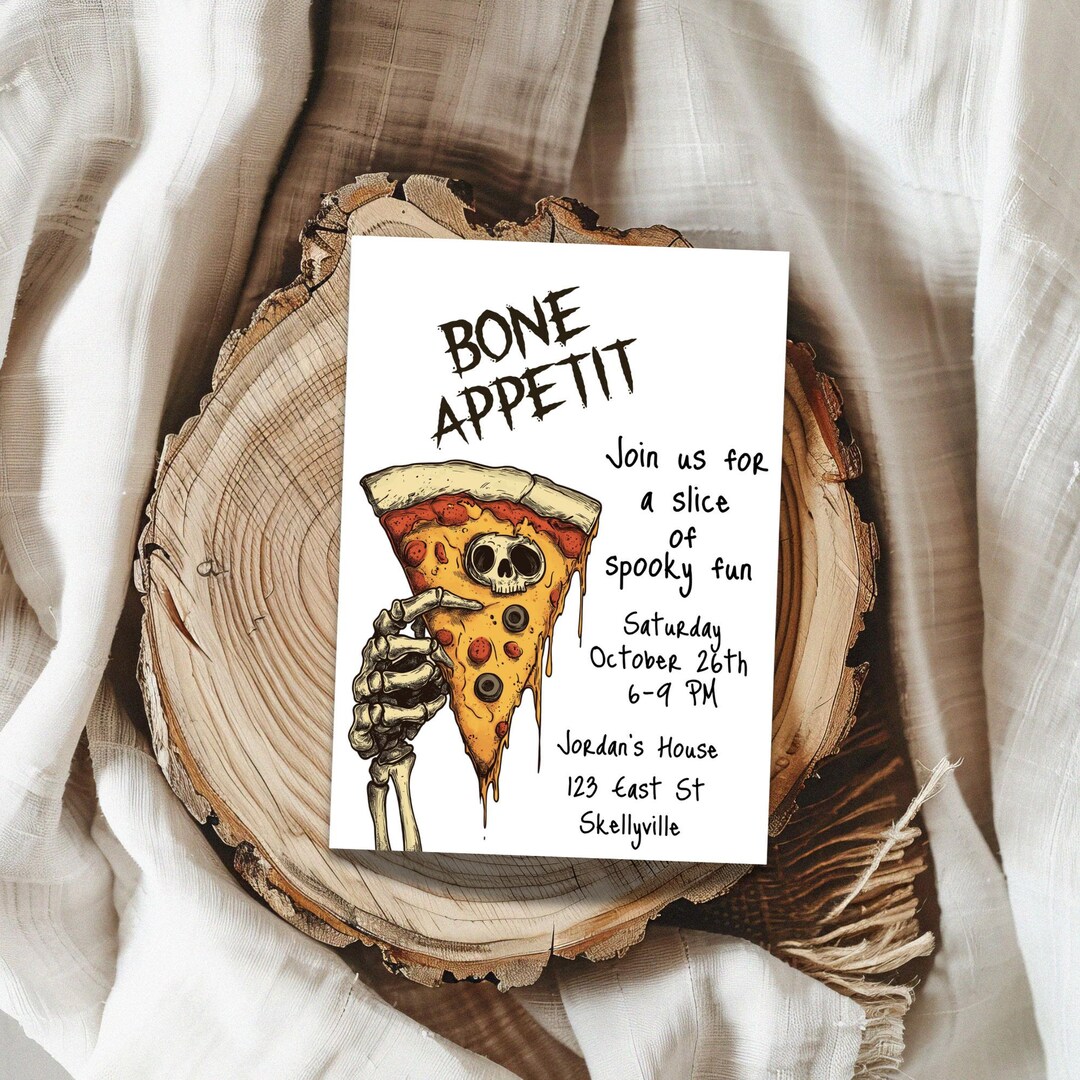 BONE
APPETIT
Join us for
a slice
of
spooky fun
Saturday
October 26th
6-9 PM
Jordan's House
123 East St
Skellyville